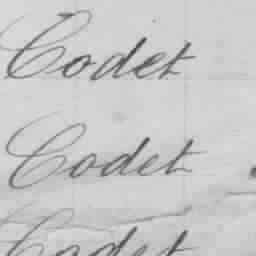 Codet
Codet
Codet